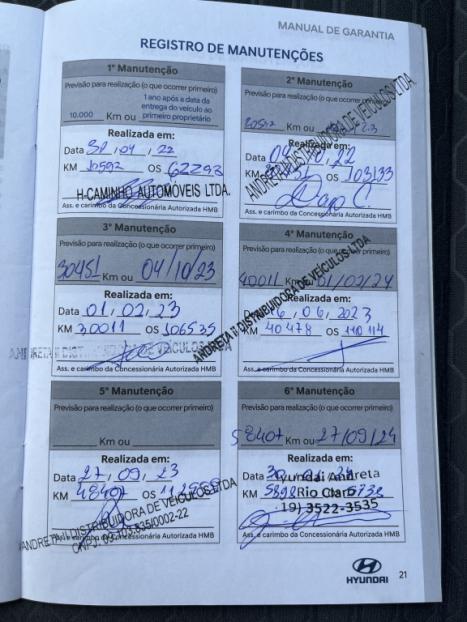 MANUAL DE GARANTIA
REGISTRO DE MANUTENÇÕES
1ª Manutenção
Previsão para realização (o que ocorrer primeiro)
10.000 Km ou 1 ano após a data da entrega do veículo ao primeiro proprietário
Realizada em:
Data 04, 22
KM 10592 OS 62293
H-CAMINHO AUTOMÓVEIS LTDA.
Ass. e carimbo da Concessionária Autorizada HMB
2ª Manutenção
Previsão para realização (o que ocorrer primeiro)
Km ou
Realizada em:
Data 22
KM OS 103133
ANDRETA II DISTRIBUIDORA DE VEÍCULOS LTDA
Ass. e carimbo da Concessionária Autorizada HMB
3ª Manutenção
Previsão para realização (o que ocorrer primeiro)
30451 Km ou 04/10/23
Realizada em:
Data 01, 02, 23
KM 30011 OS 106535
ANDRETA II DISTRIBUIDORA DE VEÍCULOS LTDA
Ass. e carimbo da Concessionária Autorizada HMB
4ª Manutenção
Previsão para realização (o que ocorrer primeiro)
40011 Km ou 01/02/24
Realizada em:
Data 06, 2023
KM 40478 OS 110114
ANDRETA II DISTRIBUIDORA DE VEÍCULOS LTDA
Ass. e carimbo da Concessionária Autorizada HMB
5ª Manutenção
Previsão para realização (o que ocorrer primeiro)
Km ou
Realizada em:
Data 27, 09, 23
KM 48407 OS
ANDRETA II DISTRIBUIDORA DE VEÍCULOS LTDA
CNPJ:
Ass. e carimbo da Concessionária Autorizada HMB
6ª Manutenção
Previsão para realização (o que ocorrer primeiro)
58407 Km ou 27/09/24
Realizada em:
Data
Hyundai Andreta
KM OS
Rio Claro
19) 3522-3535
Ass. e carimbo da Concessionária Autorizada HMB
HYUNDAI
21